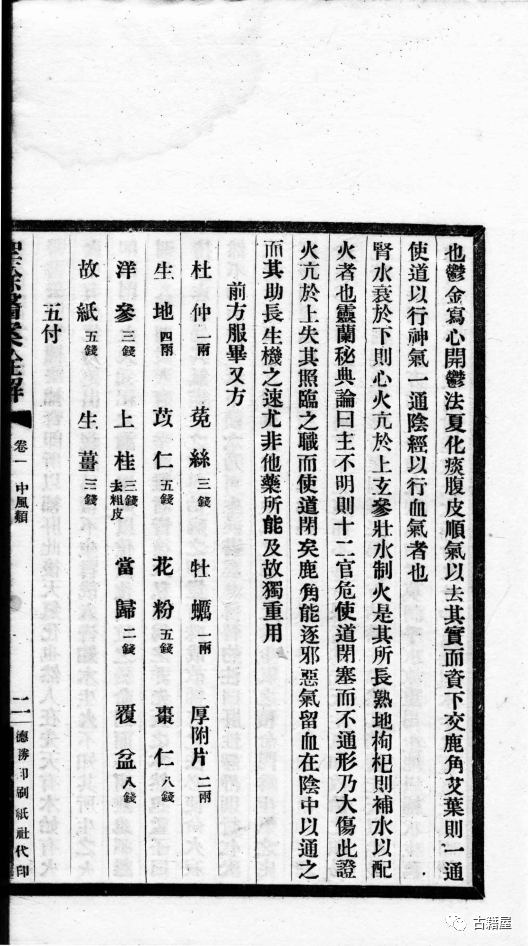 也鬱金寫心開鬱法夏化痰腹皮順氣以去其實而資下交鹿角艾葉則一通
使道以行神氣一通陰經以行血氣者也
腎水衰於下則心火亢於上玄參壯水制火是其所長熟地枸杞則補水以配
火者也靈蘭秘典論曰主不明則十二官危使道閉塞而不通形乃大傷此證
火亢於上失其照臨之職而使道閉矣鹿角能逐邪惡氣留血在陰中以通之
而其助長生機之速尤非他藥所能及故獨重用
前方服畢又方
杜仲一兩 菟絲三錢 牡蠣一兩 厚附片二兩
生地四兩 苡仁五錢 花粉五錢 棗仁八錢
洋參三錢 上桂三錢去粗皮 當歸二錢 覆盆八錢
故紙五錢 生薑三錢
五付
聖余醫案詮解 卷一 中風類 二 德勝印刷紙社代印
古籍屋